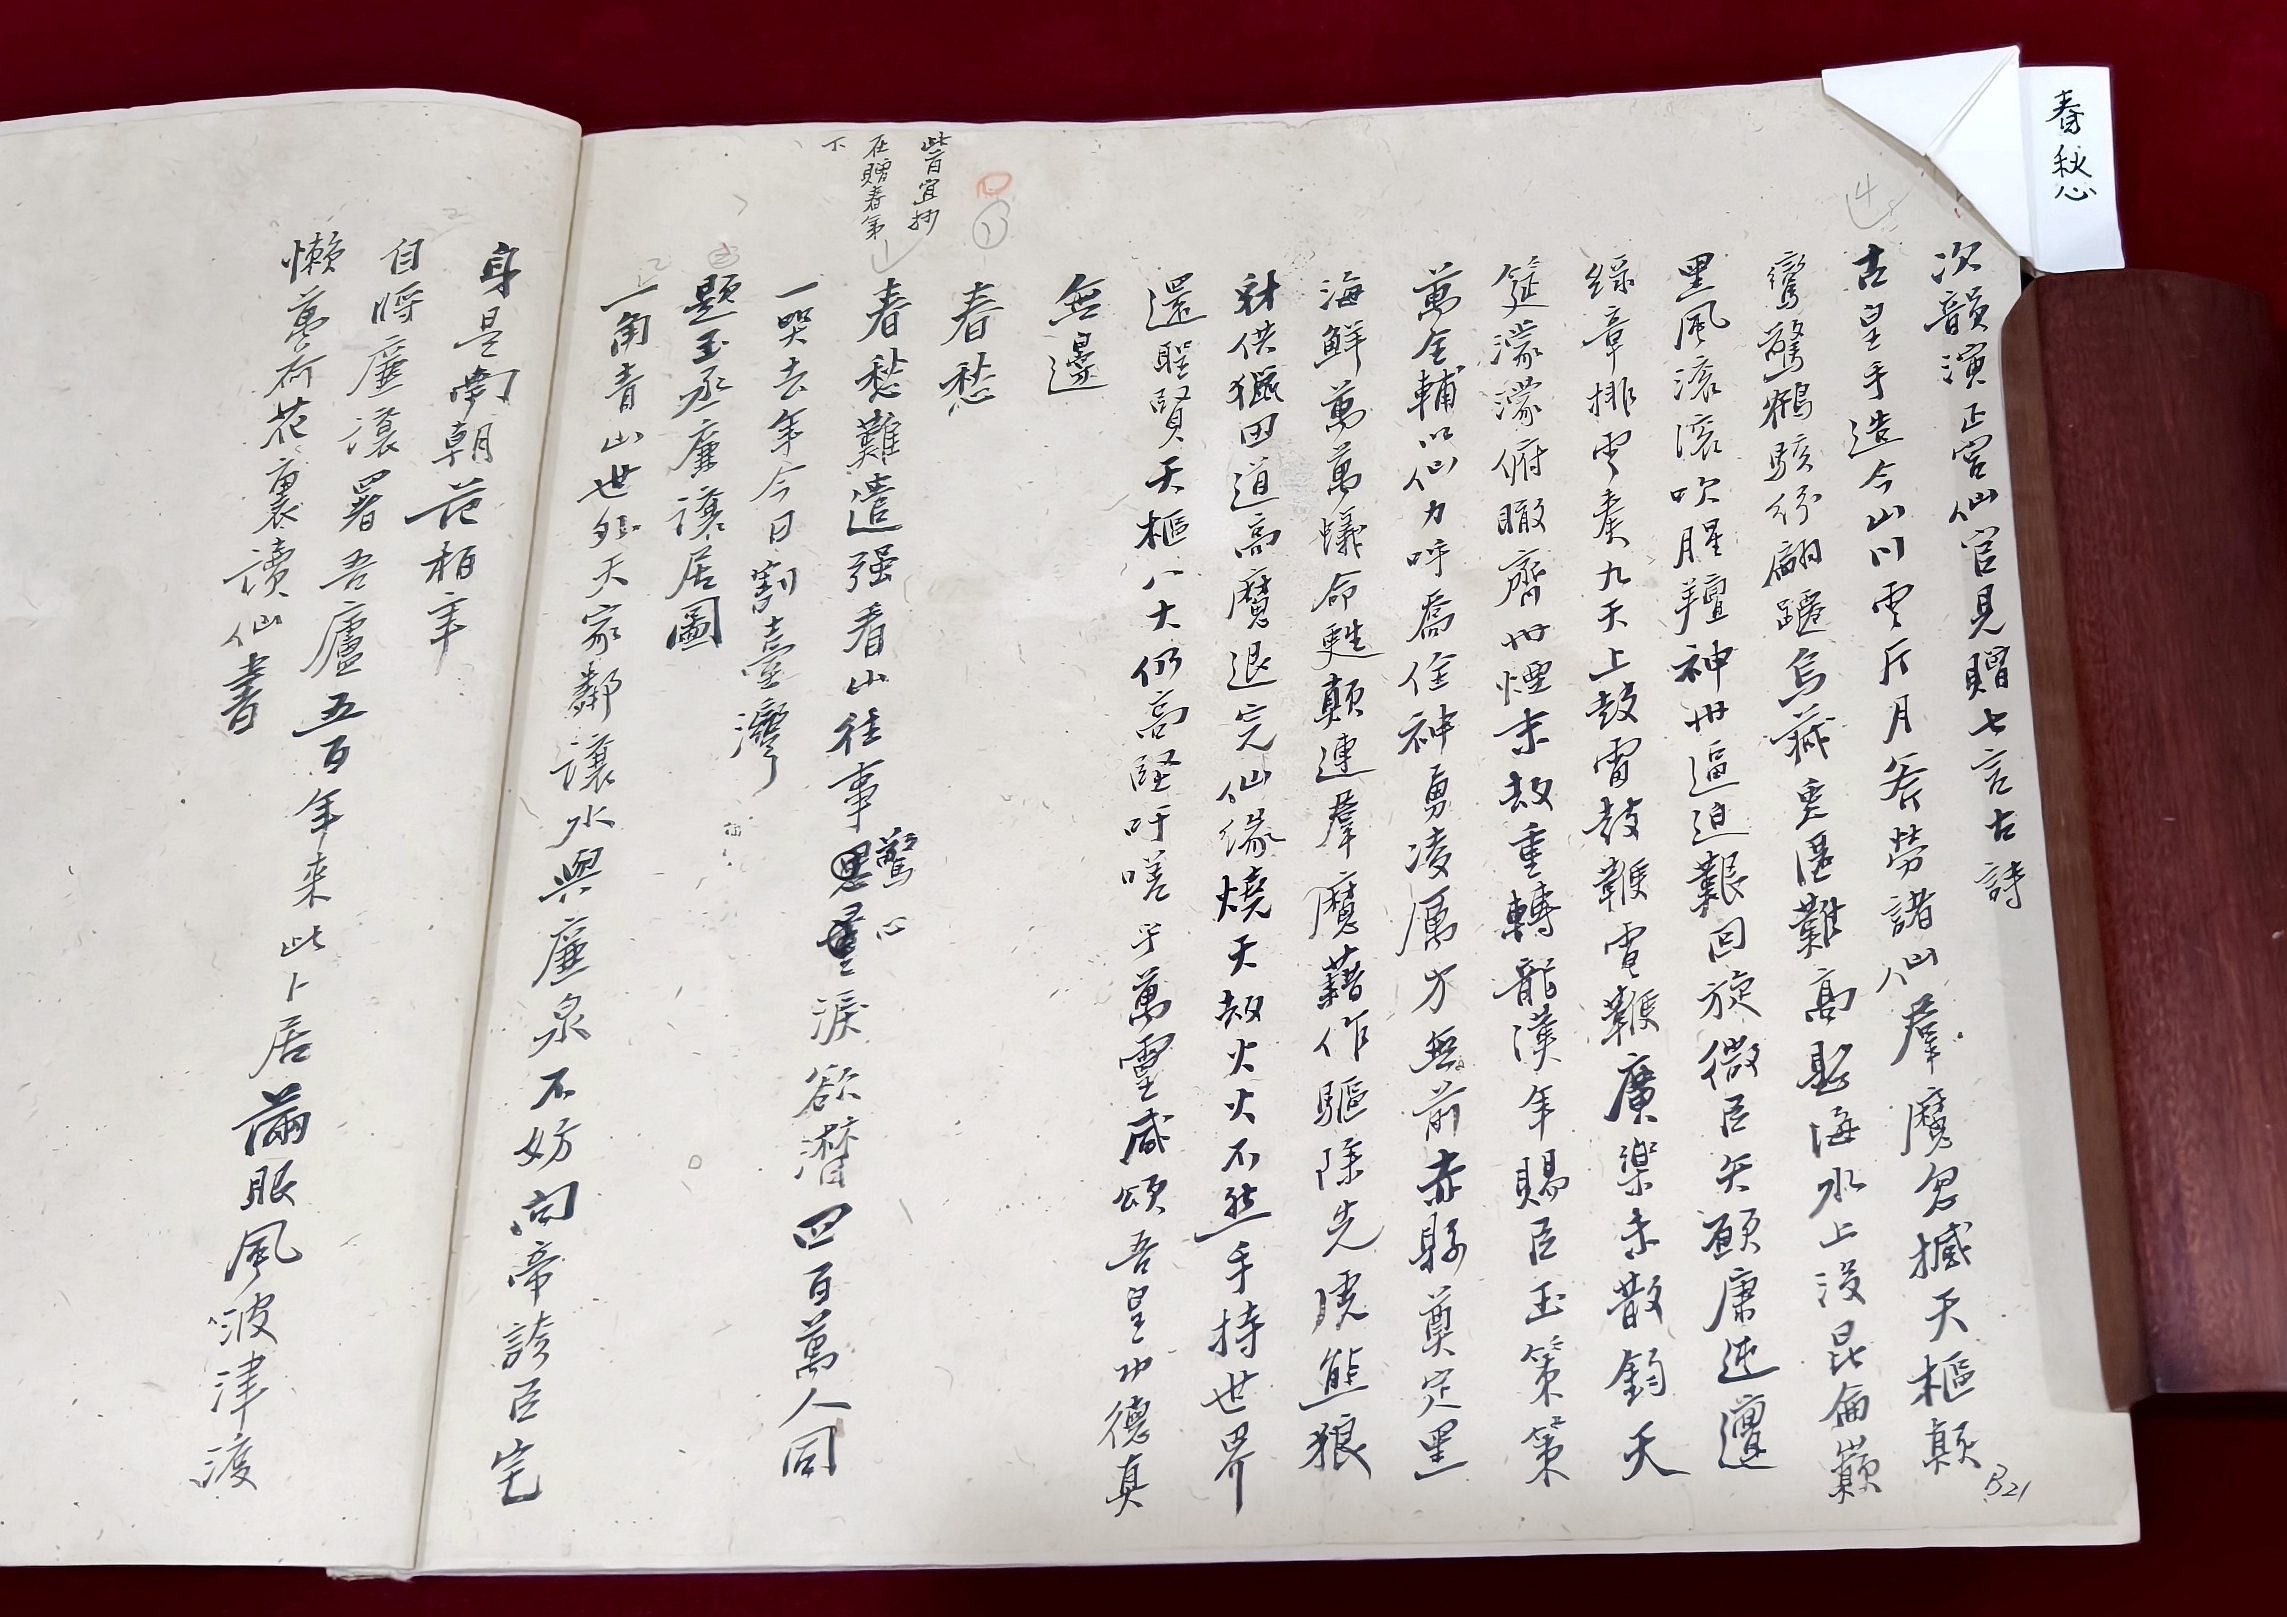 春秋心
次韻演正宮仙官見贈七言古詩
古皇手造今山川雲斤月斧勞諸仙羣魔忽撼天樞顛
鸞驚鶴駭紛翩躚烏藏兔匿難高懸海水上沒昆侖巔
黑風滾滾吹腥羶神州逼迫艱回旋微臣矢願康迍邅
綠章排雲奏九天上鼓雷鼓鞭電鞭廣樂未散鈞天
筵濛濛俯瞰齊州煙末劫重轉龍漢年賜臣玉策策
萬全輔以仙力呼喬佺神勇凌厲方無前赤縣奠定黑
海鮮萬萬蟻命甦顛連羣魔藉作驅除先虎熊狼
豺供獵田道高魔退完仙緣燒天劫火火不然手持世界
還聖賢天樞八大仍高堅吁嗟乎萬靈咸頌吾皇功德真
無邊
此首宜抄
在贈春第
下
春愁
春愁難遣强看山往事驚心淚欲潸四百萬人同
一哭去年今日割臺灣
題玉丞廉讓居圖
一角青山世外天家鄰讓水與廉泉不妨向帝誇臣宅
身是南朝范柏年
自將廉讓署吾廬五百年來此卜居滿眼風波津渡
懶萬荷花裏讀仙書
B21